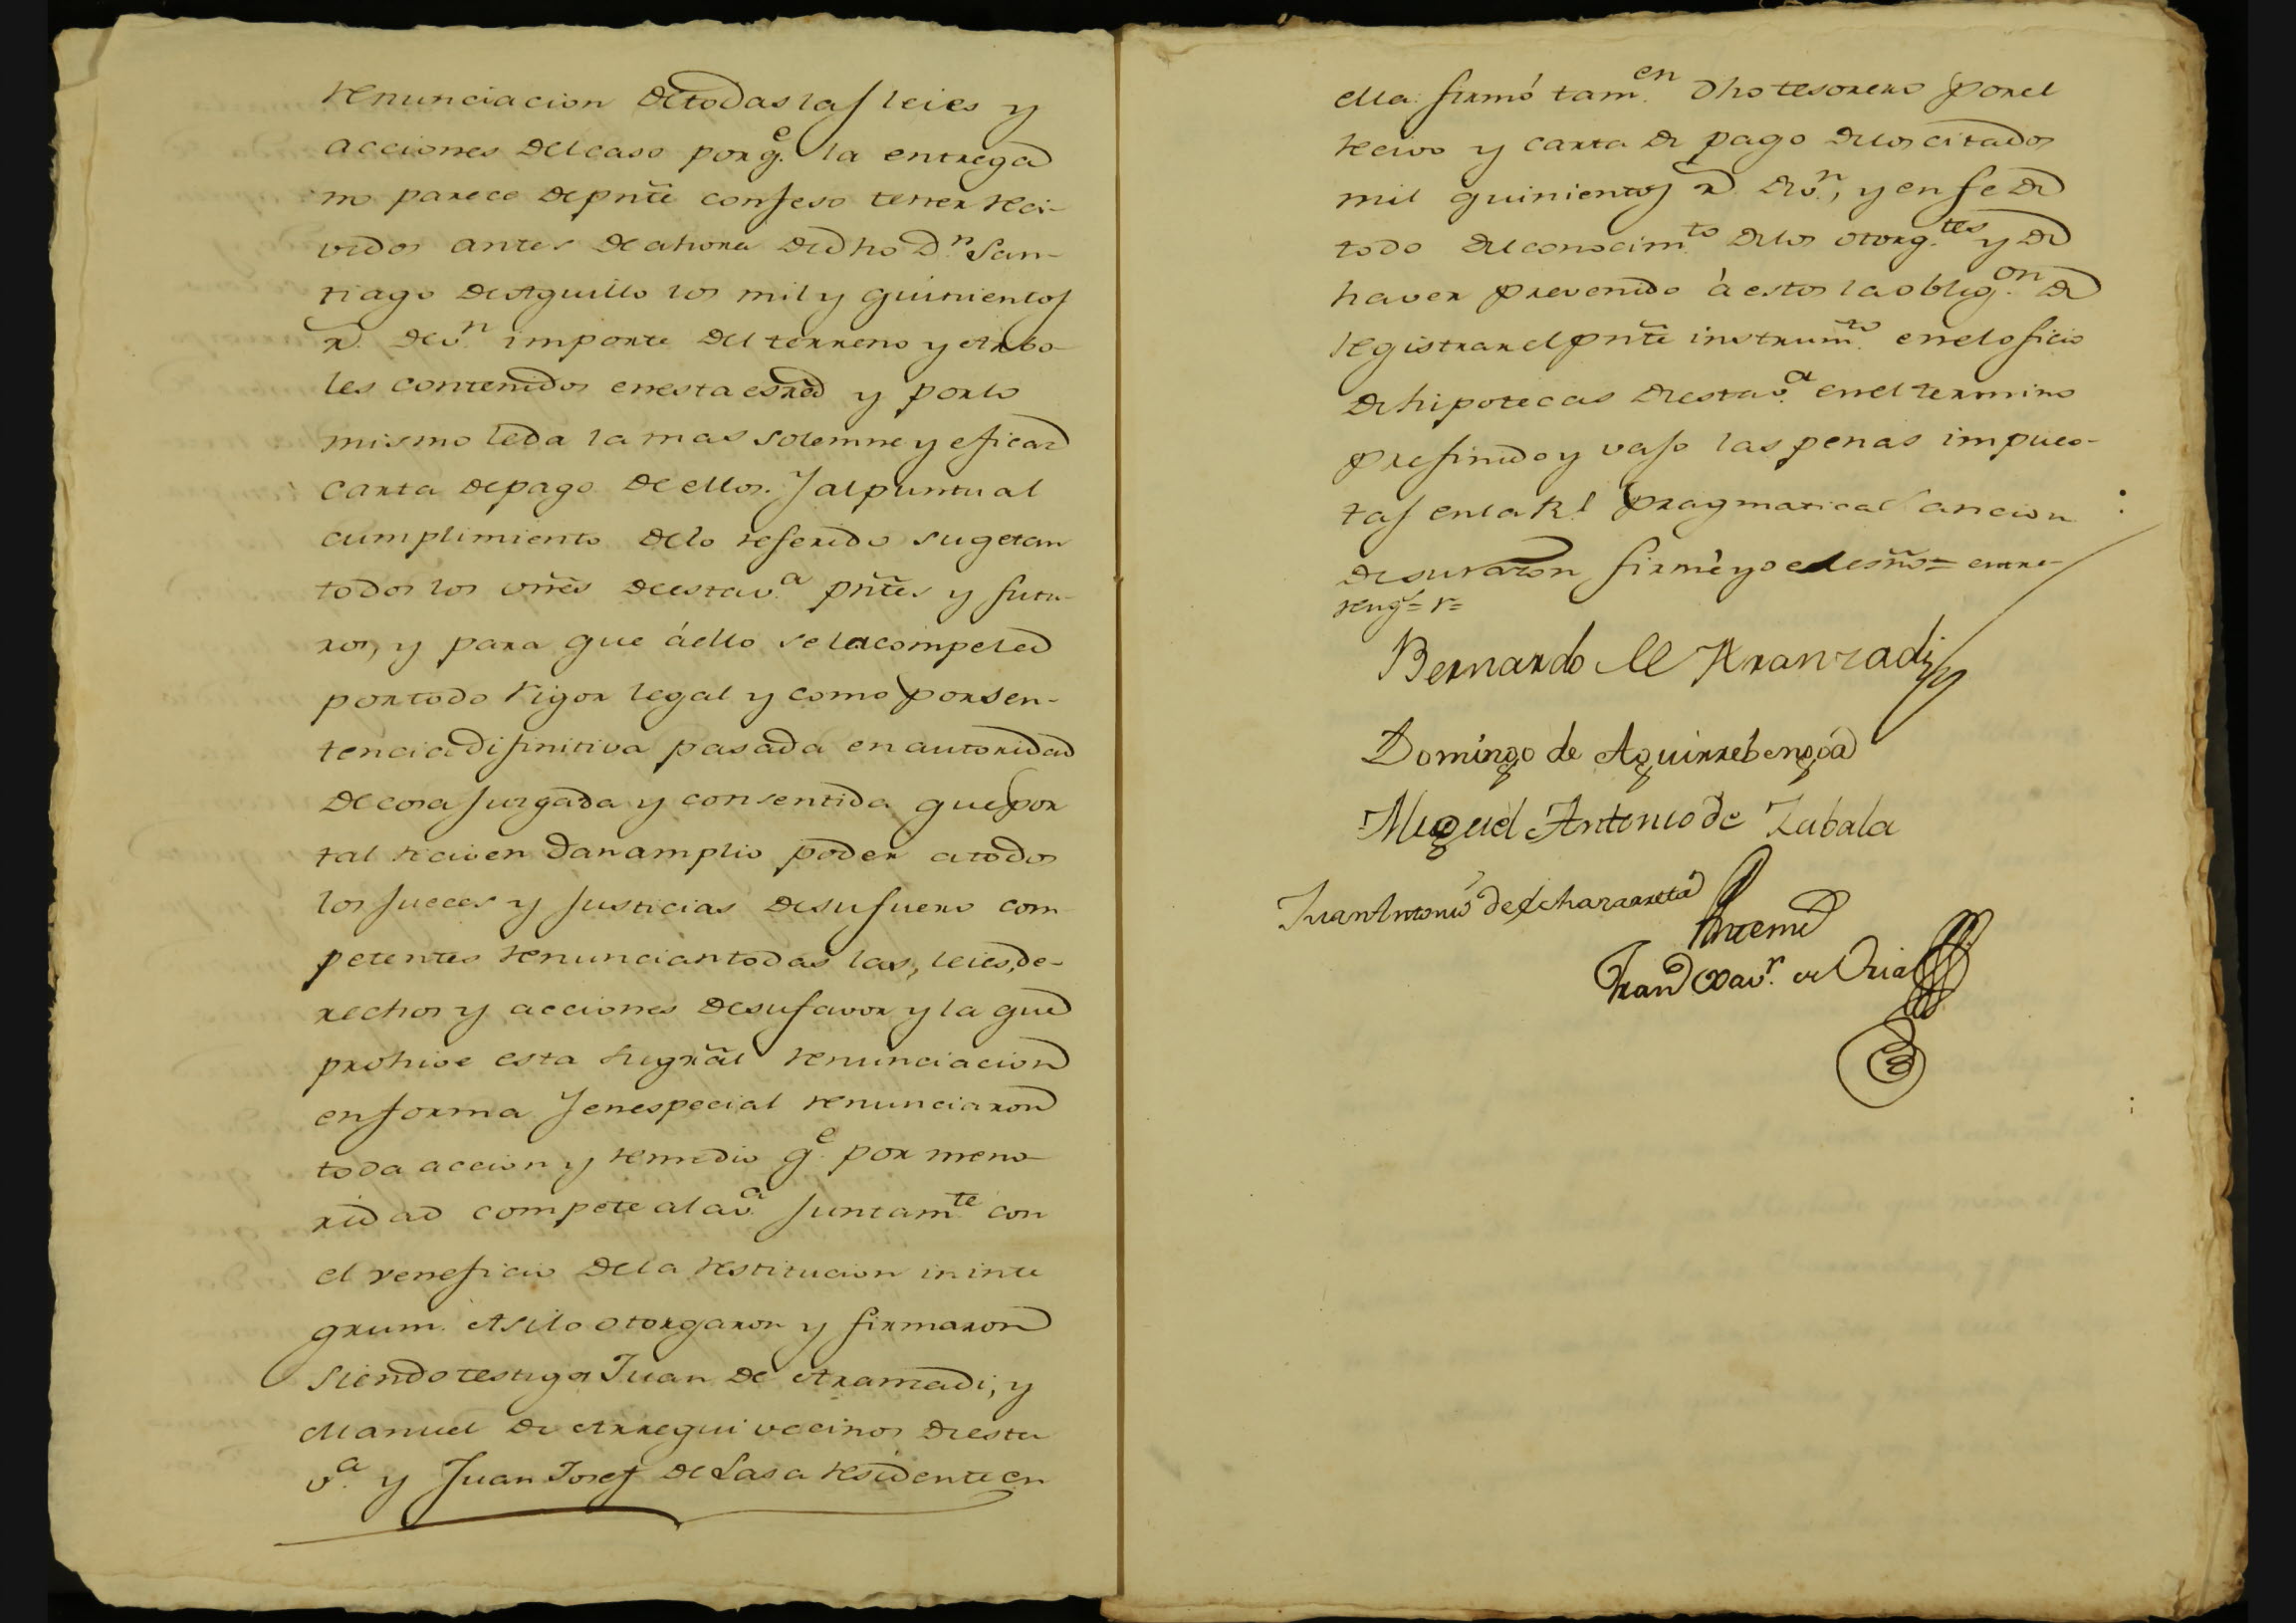 renunciacion de todas las leies y
acciones del caso por q.e la entrega
no parece de pnte confeso tener reci-
vidos antes de ahora de dho D.n San-
tiago de Aguillo los mil y quinientos
r.s de v.n importe del terreno y Arbo-
les contenidos en esta esra y por lo
mismo le da la mas solemne y eficaz
carta de pago de ellos. Y al puntual
cumplimiento de lo referido sugetan
todos los vnes de esta v.a pntes y futu-
ros, y para que á ello se les compela
por todo rigor legal y como por sen-
tencia difinitiva pasada en autoridad
de cosa juzgada y consentida que por
tal reciven dan amplio poder a todos
los Jueces y Justicias de su fuero com
petentes renuncian todas las, leies, de-
rechos y acciones de su favor y la que
prohive esta su gral renunciacion
en forma Y en especial renunciaron
toda accion y remedio q.e por meno-
ridad compete a la v.a juntam.te con
el veneficio de la restitucion in inte
grum. Asi lo otorgaron y firmaron
siendo testigos Juan de Aramendi, y
Manuel de Arregui vecinos de esta
v.a y Juan Josef de Lasa residente en
ella firmó tam.en dho tesorero por el
recivo y carta de pago de los citados
mil quinientos r.s de v.n, y en fe de
todo del conocim.to de los otorg.tes y de
haver prevenido à estos la oblig.on de
registrar el pnte instrum.to en el oficio
de hipotecas de esta v.a en el termino
prefinido y vajo las penas impues-
tas en la R.l pragmatica Sancion
de su razon firmè yo el esno = entre-
reng.s = r =
Bernardo M Aranzadi y
Domingo de Aguirrebengoa
Miguel Antonio de Zabala
Juan Antonio de Echazarreta
Ante mi
Fran.co Xav.r de Oria